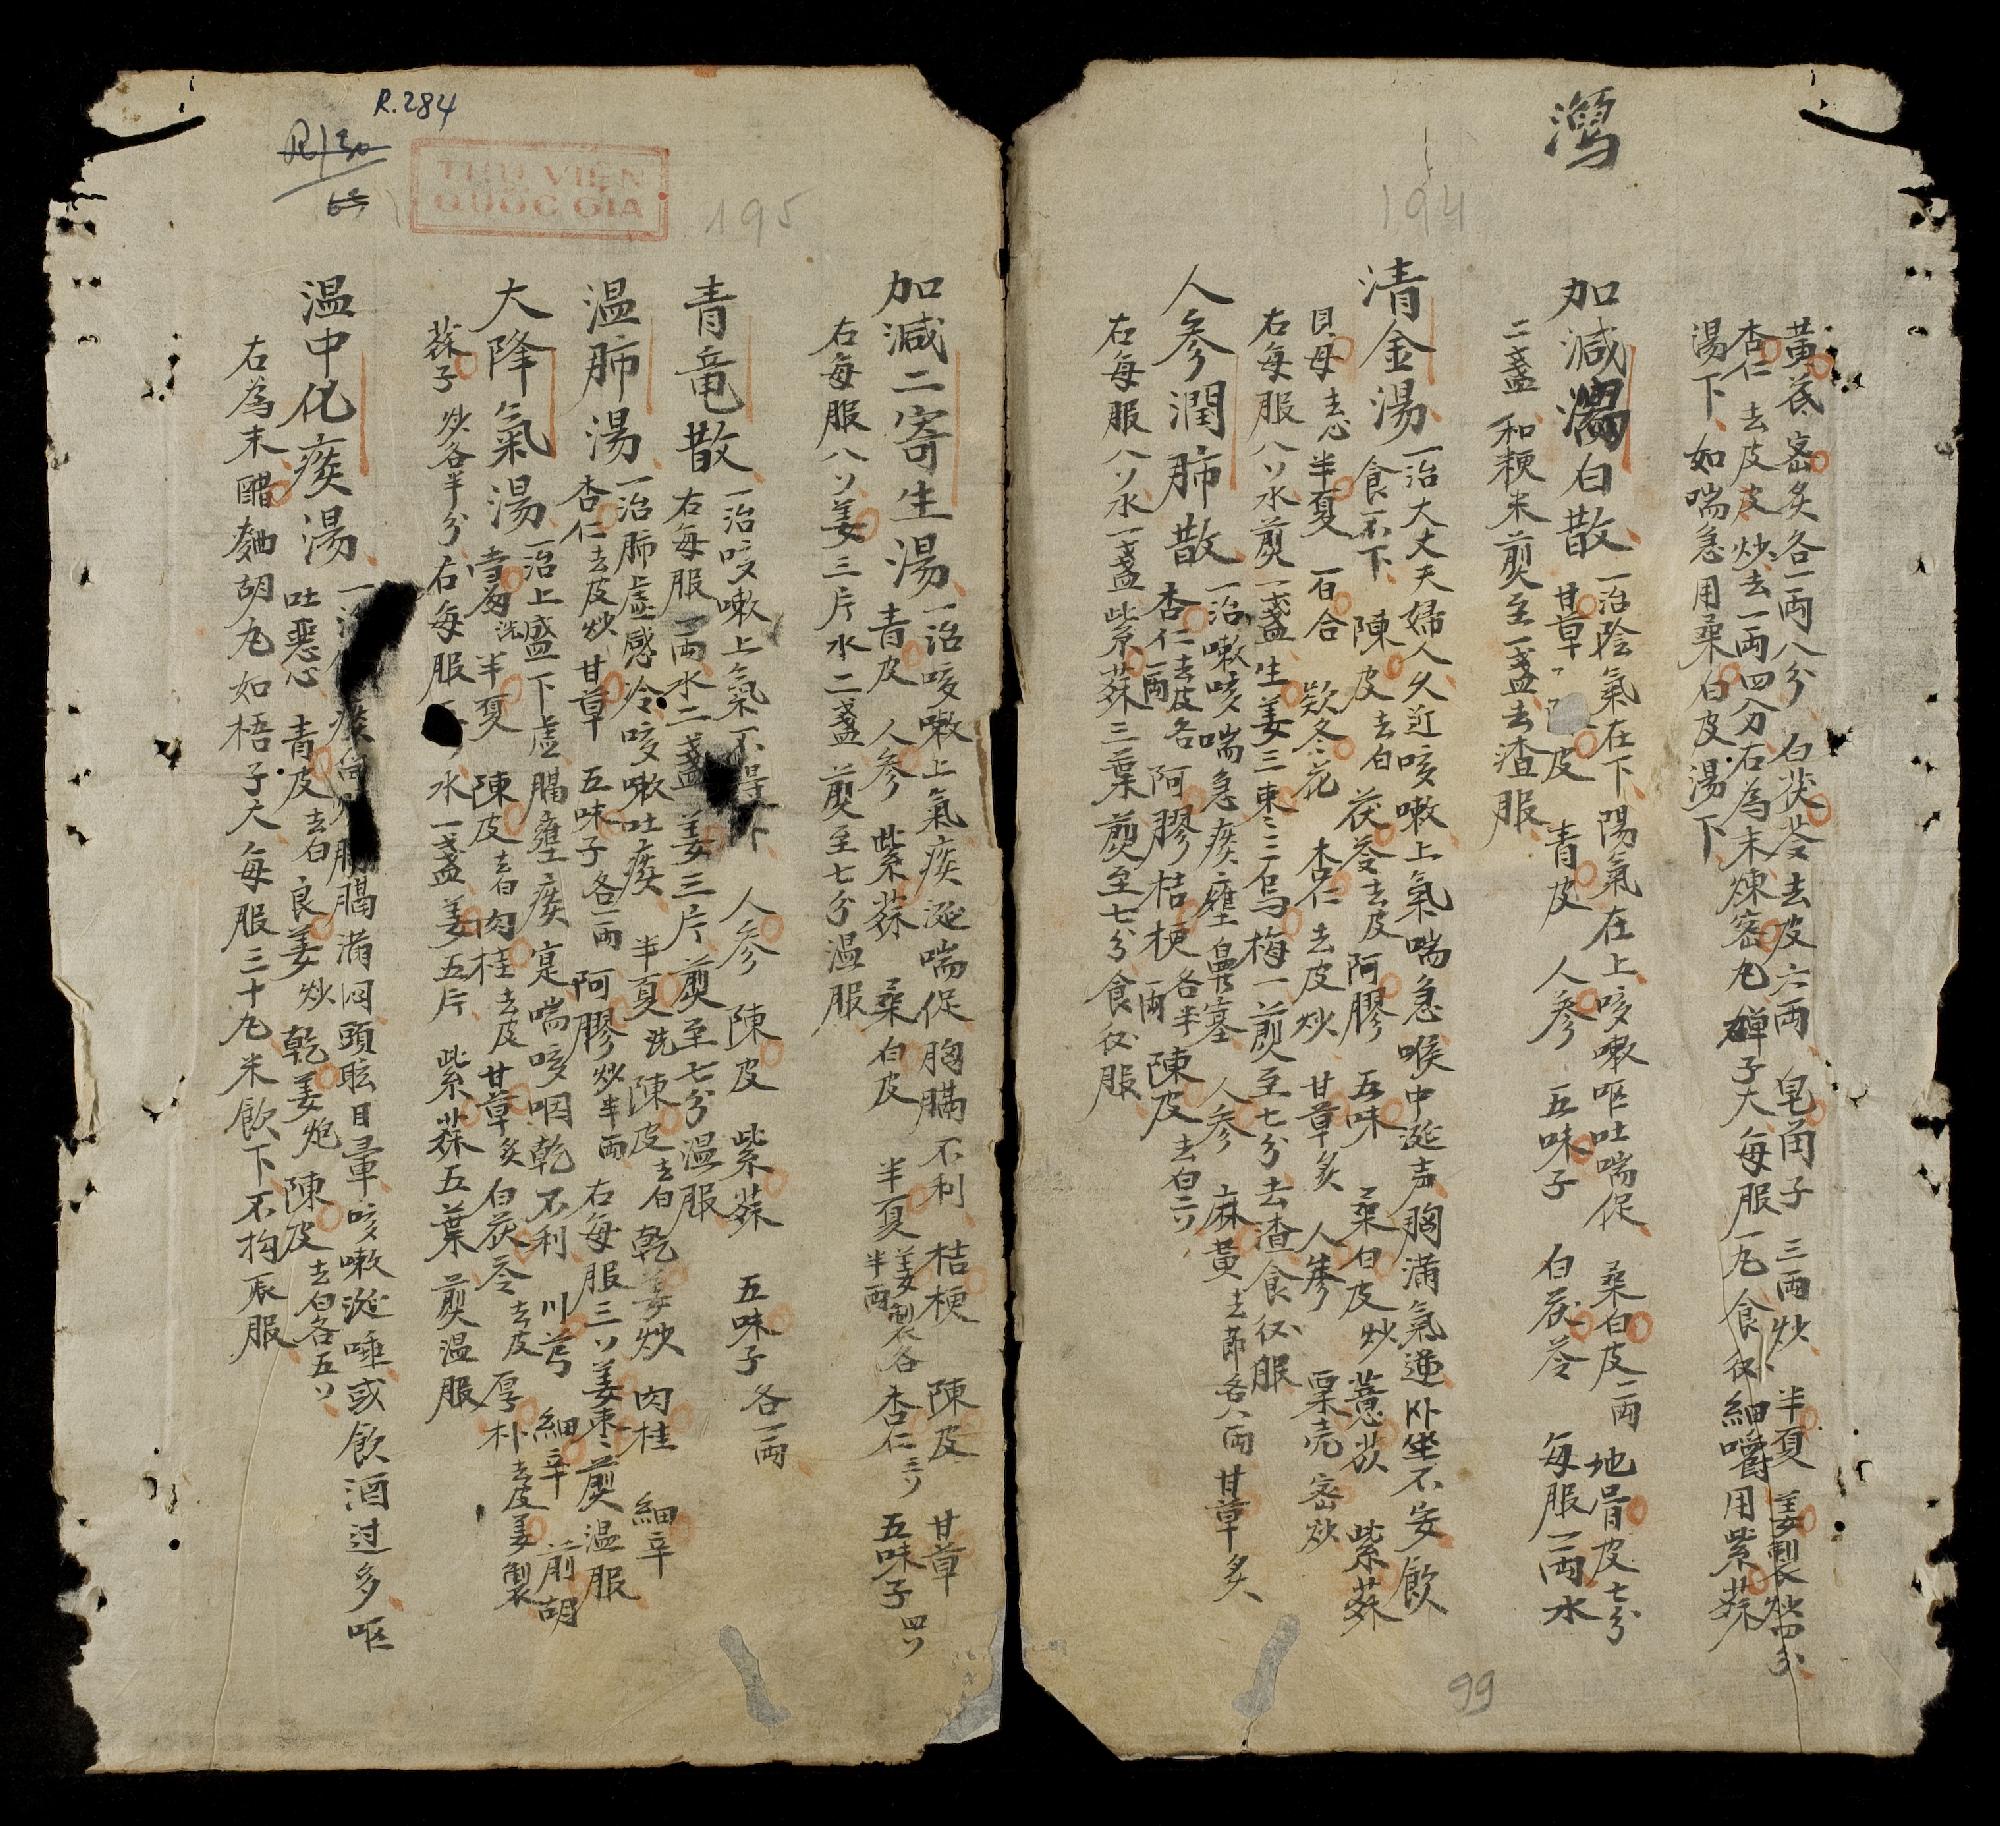 瀉
194
黃芪 密炙各一両八分 白茯苓去皮六両 皂角子 三両炒 半夏 姜製炒四分
杏仁 去皮皮炒去一両四分右為末煉密丸彈子大每服一丸食後細嚼用紫蘇
湯下 如喘急用桑白皮湯下
加減瀉白散 一治陰氣在下陽氣在上咳嗽呕吐喘促 桑白皮一両 地骨皮七分
甘草 皮 青皮 人參 五味子 白茯苓 每服一両水
二盞 和粳米煎至一盞去渣服
清金湯 一治大丈夫婦人久近咳嗽上氣喘急喉中涎声胸滿氣逆卧坐不安飲
食不下 陳皮去白茯苓去皮阿膠 五味 桑白皮炒薏苡 紫蘇
貝母去心半夏 百合 欵冬花 杏仁 去皮炒 甘草炙 人參 粟壳密炒
右每服八ソ水煎一盞生姜三棗二烏梅一煎至七分去渣食後服
人參潤肺散 一治嗽咳喘急痰壅鼻塞 人參 麻黃去節各八両甘草炙
杏仁去皮各一両 阿膠桔梗各半両 陳皮去白二ソ
右每服八ソ水一盞紫蘇三葉煎至七分食後服
99
R.284
THƯ VIỆN
QUỐC GIA
195
加減二寄生湯 一治咳嗽上氣痰涎喘促胸膈不利 桔梗 陳皮 甘草
青皮 人參 紫蘇 桑白皮 半夏姜製各半両 杏仁三ソ 五味子四ソ
右每服八ソ姜三片水二盞煎至七分温服
青竜散 一治咳嗽上氣不得卜 人參 陳皮 紫蘇 五味子各一両
右每服一両水二盞姜三片煎至七分温服
温肺湯 一治肺虛感冷咳嗽吐痰 半夏洗陳皮去白乾姜炒 肉桂 細辛
杏仁去皮炒 甘草 五味子各一両 阿膠炒半両 右每服三ソ姜棗煎温服
大降氣湯 一治上盛下虛膈壅痰寔喘咳咽乾不利 川芎 細辛 前胡
當歸洗半夏 陳皮去白肉桂去皮甘草炙白茯苓去皮厚朴去皮姜製
蘇子 炒各半分右每服 水一盞姜五片 紫蘇五葉煎温服
温中化痰湯 一 痰 胸膈滿悶頭眩目暈咳嗽涎唾或飲酒过多呕
吐惡心 青皮去白良姜炒乾姜炮陳皮去白各五ソ
右為末醋麯胡丸如梧子大每服三十丸米飲下不拘辰服